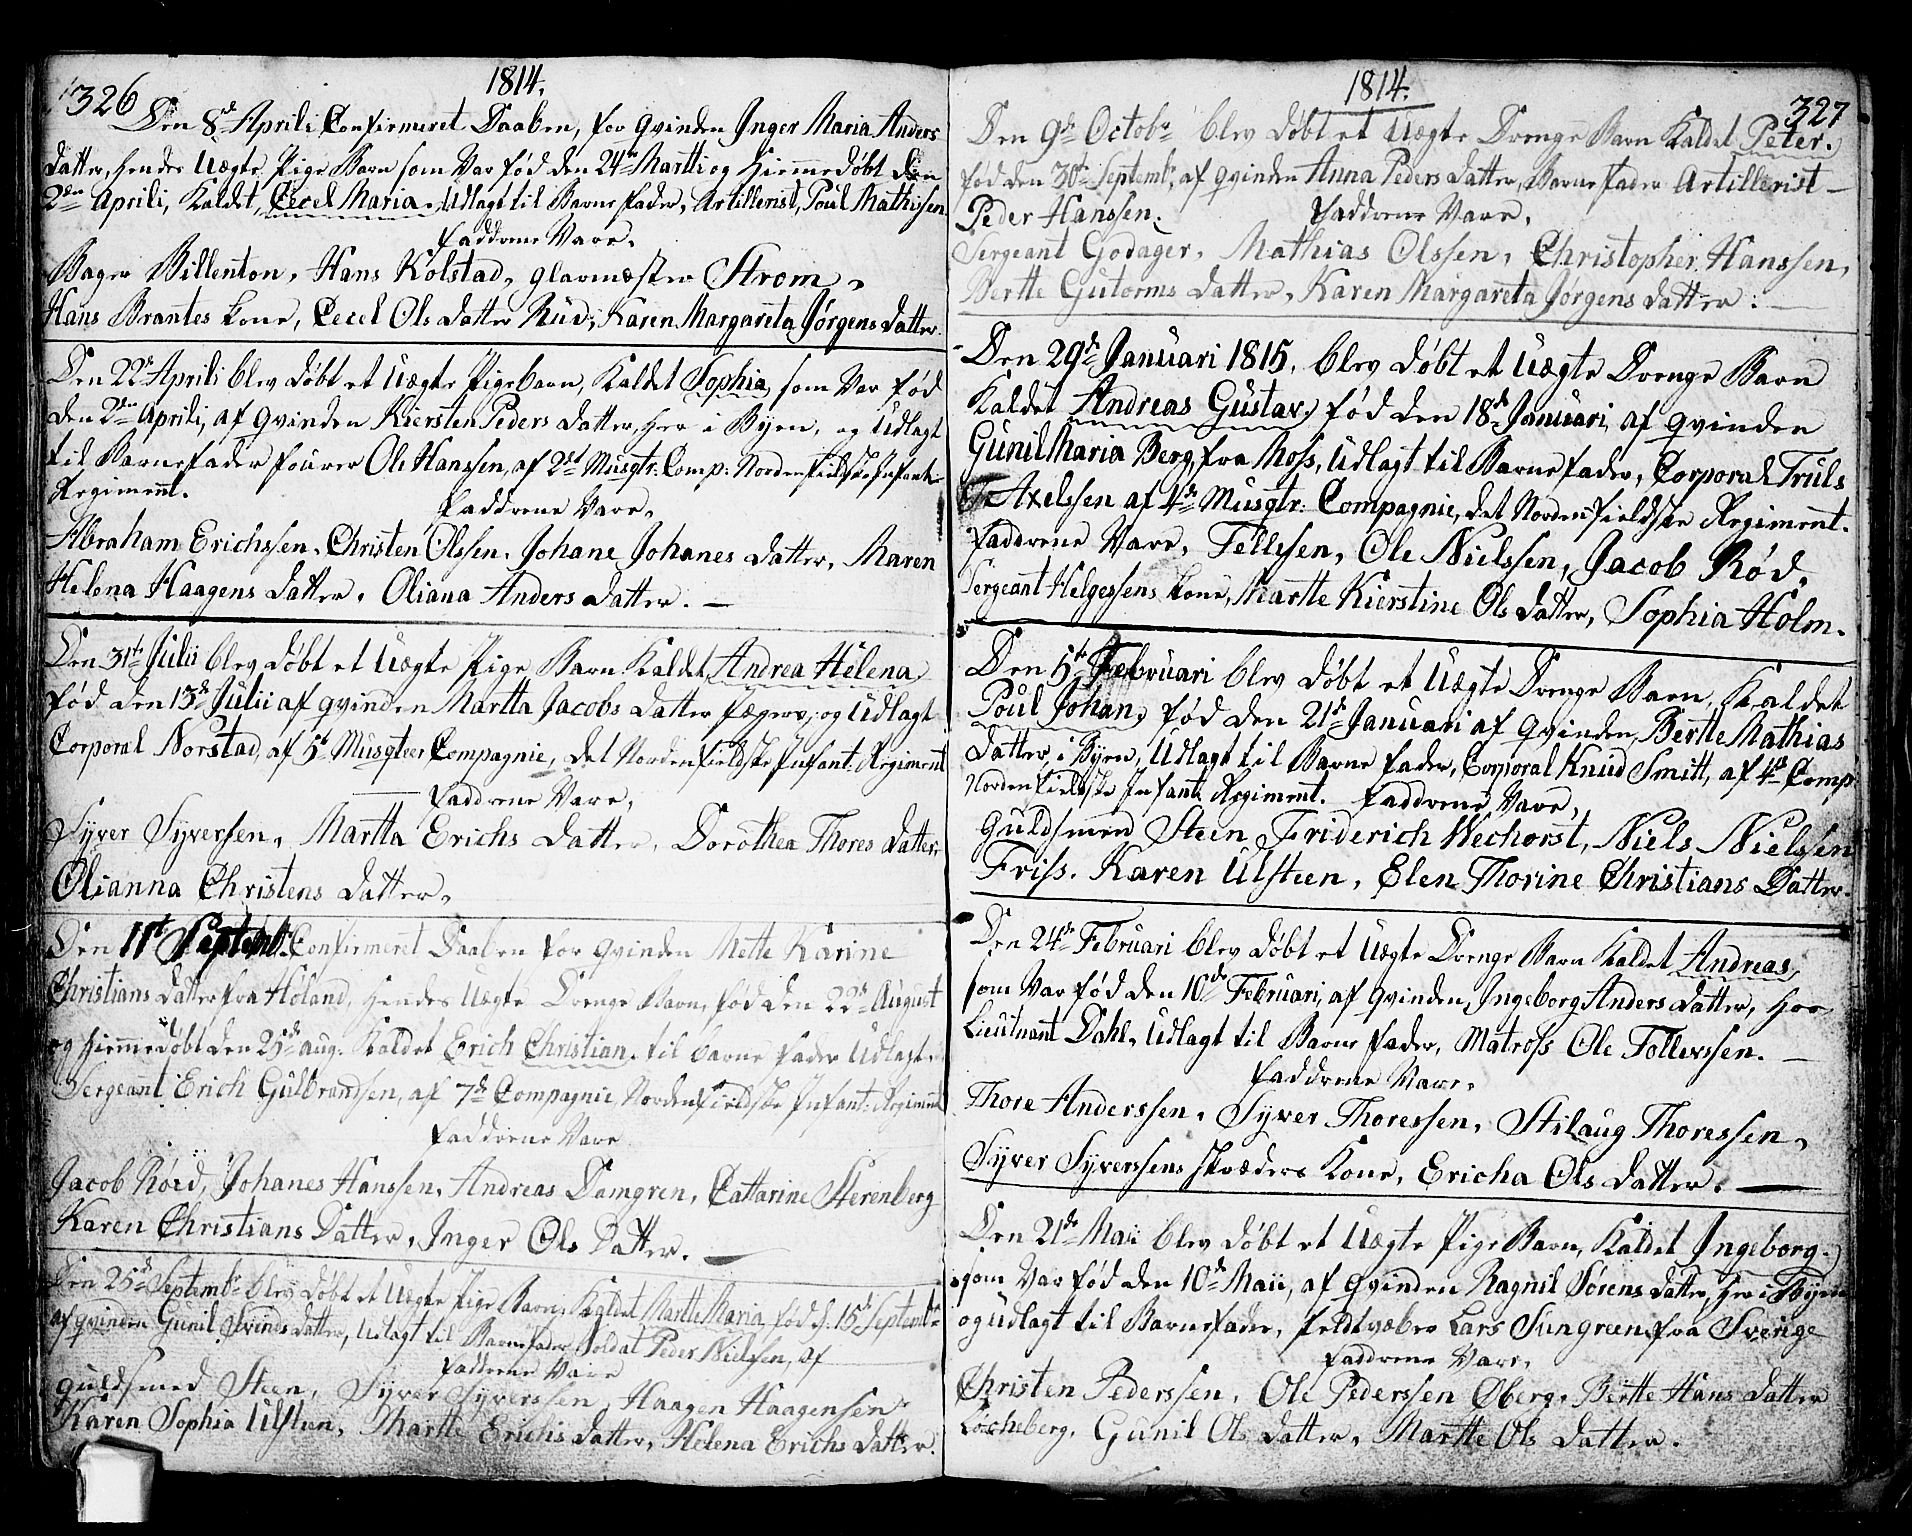 326
1814.
Den 8de Aprili Confirmeret Daaben, for qvinden Inger Maria Anders
datter, hendes Uægte Pige Barn som var fød den 24de Martti og hiemmedøbt den
2den Aprili, kaldet, Cecel Maria. Udlagt til Barne fader, Artillerist, Poul Mathisen
faddrene vare.
Bager Billenton, Hans Kolstad, glarmæster Strøm.
Hans Brantes kone, Cecel Ols datter Rud, Karen Margareta Jørgens datter.
Den 22de Aprili blev døbt et Uægte Pigebarn, kaldet Sophia, som var fød
den 2den Aprili, af qvinden Kiersten Peders datter, her i Byen, og Udlagt
til Barnefader fourer Ole Hanssen, af 2det Musqtr: Comp: Nordenfieldske Infant:
Regiment.
faddrene vare.
Abraham Erichssen, Christen Olssen, Johane Johanes datter, Maren
Helena Haagens datter, Oliana Anders datter. —
Den 31te Julii blev døbt et Uægte Pige Barn kaldet, Andrea Helena
fød den 13de Julii af qvinden Martta Jacobs datter, og Udlagt
Corporal Norstad, af 5te Musqteer Compagnie, det Nordenfieldske Infant: Regiment
faddrene vare,
Syver Syversen, Martta Erichs datter, Dorothea Thores datter,
Olianna Christens datter.
Den 11te Septembr: Confirmeret Daaben for qvinden Mette Karine
Christians datter fra Høland, hendes Uægte Drenge Barn, fød den 22de August
og hiemmedøbt den 25de aug: kaldet Erich Christian, til barne fader Udlagt
Sergeant Erich Gulbrandsen, af 7de Compagnie, Nordenfieldske Infant: Regiment
faddrene vare
Jacob Røed, Johanes Hanssen, Andreas Damgren, Cattarine Sterenberg
Karen Christians Datter, Inger Ols Datter. —
Den 25de Septembr blev døbt et Uægte Pige Barn, kaldet Martte Maria, fød d. 15de Septembr
af qvinden Gunil Svends datter, Udlagt til Barnefader Soldat Peder Nielssen, af
faddrene vare
guldsmed Steen, Syver Syverssen, Haagen Haagensen
Karen Sophia Ulsteen, Martte Erichs datter, Helena Erichs datter.
1814.
327
Den 9de Octobr blev døbt et Uægte Drenge Barn kaldet Peter.
fød den 30te Septembr, af qvinden Anna Peders datter, Barnefader Artillerist —
Peder Hanssen. faddrene vare,
Sergeant Godager, Mathias Olssen, Christopher Hanssen,
Bertte Gutorms datter, Karen Margareta Jørgens datter: —
Den 29de Januari 1815. blev døbt et Uægte Drenge Barn
kaldet Andreas Gustav, fød den 18de Januari, af qvinden
Gunil Maria Berg, fra Moss, Udlagt til Barnefader, Corporal Truls
Axelssen af 4de Musqtr: Compagnie, det Nordenfieldske Regiment.
faddrene vare, Tellesen, Ole Nielssen, Jacob Rød,
Sergeant Helgessens kone, Martte Kierstine Ols datter, Sophia Holm.
Den 5te Februari blev døbt et Uægte Drenge Barn, kaldet
Poul Johan, fød den 21de Januari af qvinden, Bertte Mathias
datter, i Byen, Udlagt til Barne fader, Corporal Knud Smitt, af 4de Comp
Nordenfieldske Infant: Regiment. faddrene vare,
guldsmed Steen, Friderich Wechorst, Niels Nielssen
Friss. Karen Ulsteen, Elen Thorine Christians Datter.
Den 24de Februari blev døbt et Uægte Drenge Barn kaldet Andreas,
som var fød den 10de Februari, af qvinden, Ingeborg Anders datter, hos
Lieutnant Dahl, Udlagt til Barne fader, Matross Ole Tollerssen. —
faddrene vare,
Thore Anderssen, Syver Thoressen, Stilaug Thoressen,
Syver Syverssens skræders kone, Ericha Ols datter. —
Den 21de Maii blev døbt et Uægte Pige Barn, kaldet Ingeborg.
som var fød den 10de Maii, af qvinden Ragnil Sørens datter, her i Byen
og Udlagt til Barnefader, feldtvæber Lars Sungreen, fra Sverige
faddrene vare,
Christen Pederssen, Ole Pederssen Øberg, Bertte Hans datter
Løcheberg, Gunil Ols datter, Martte Ols datter.